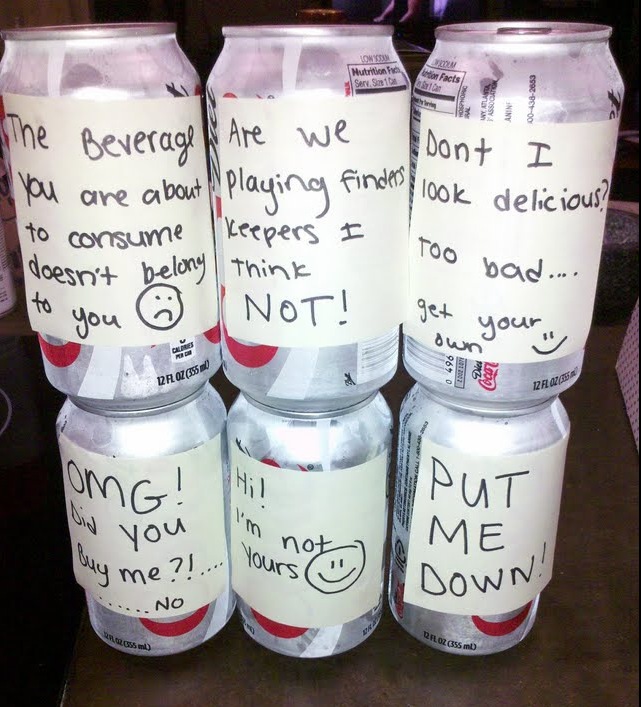 The Beverage
you are about
to consume
doesn't belong
to you
Are we
playing finders
keepers I
think
NOT!
Dont I
look delicious?
Too bad....
get your
own
LOW SODIUM
Nutrition Facts
Serv. Size 1 Can
CALORIES
PER CAN
12 FL OZ (355 mL)
Diet
Coca
12 FL OZ (355 mL)
OMG!
Did you
Buy me?!....
......NO
Hi!
I'm not
yours
PUT
ME
DOWN!
12 FL OZ (355 mL)
12 FL OZ (355 mL)